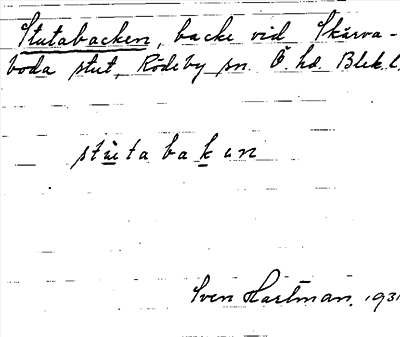 Stutabacken, backe vid Skärva-
boda stut, Rödeby sn. Ö. hd. Blek.l.
stu̲ta bak̲en
Sven Hartman. 1931